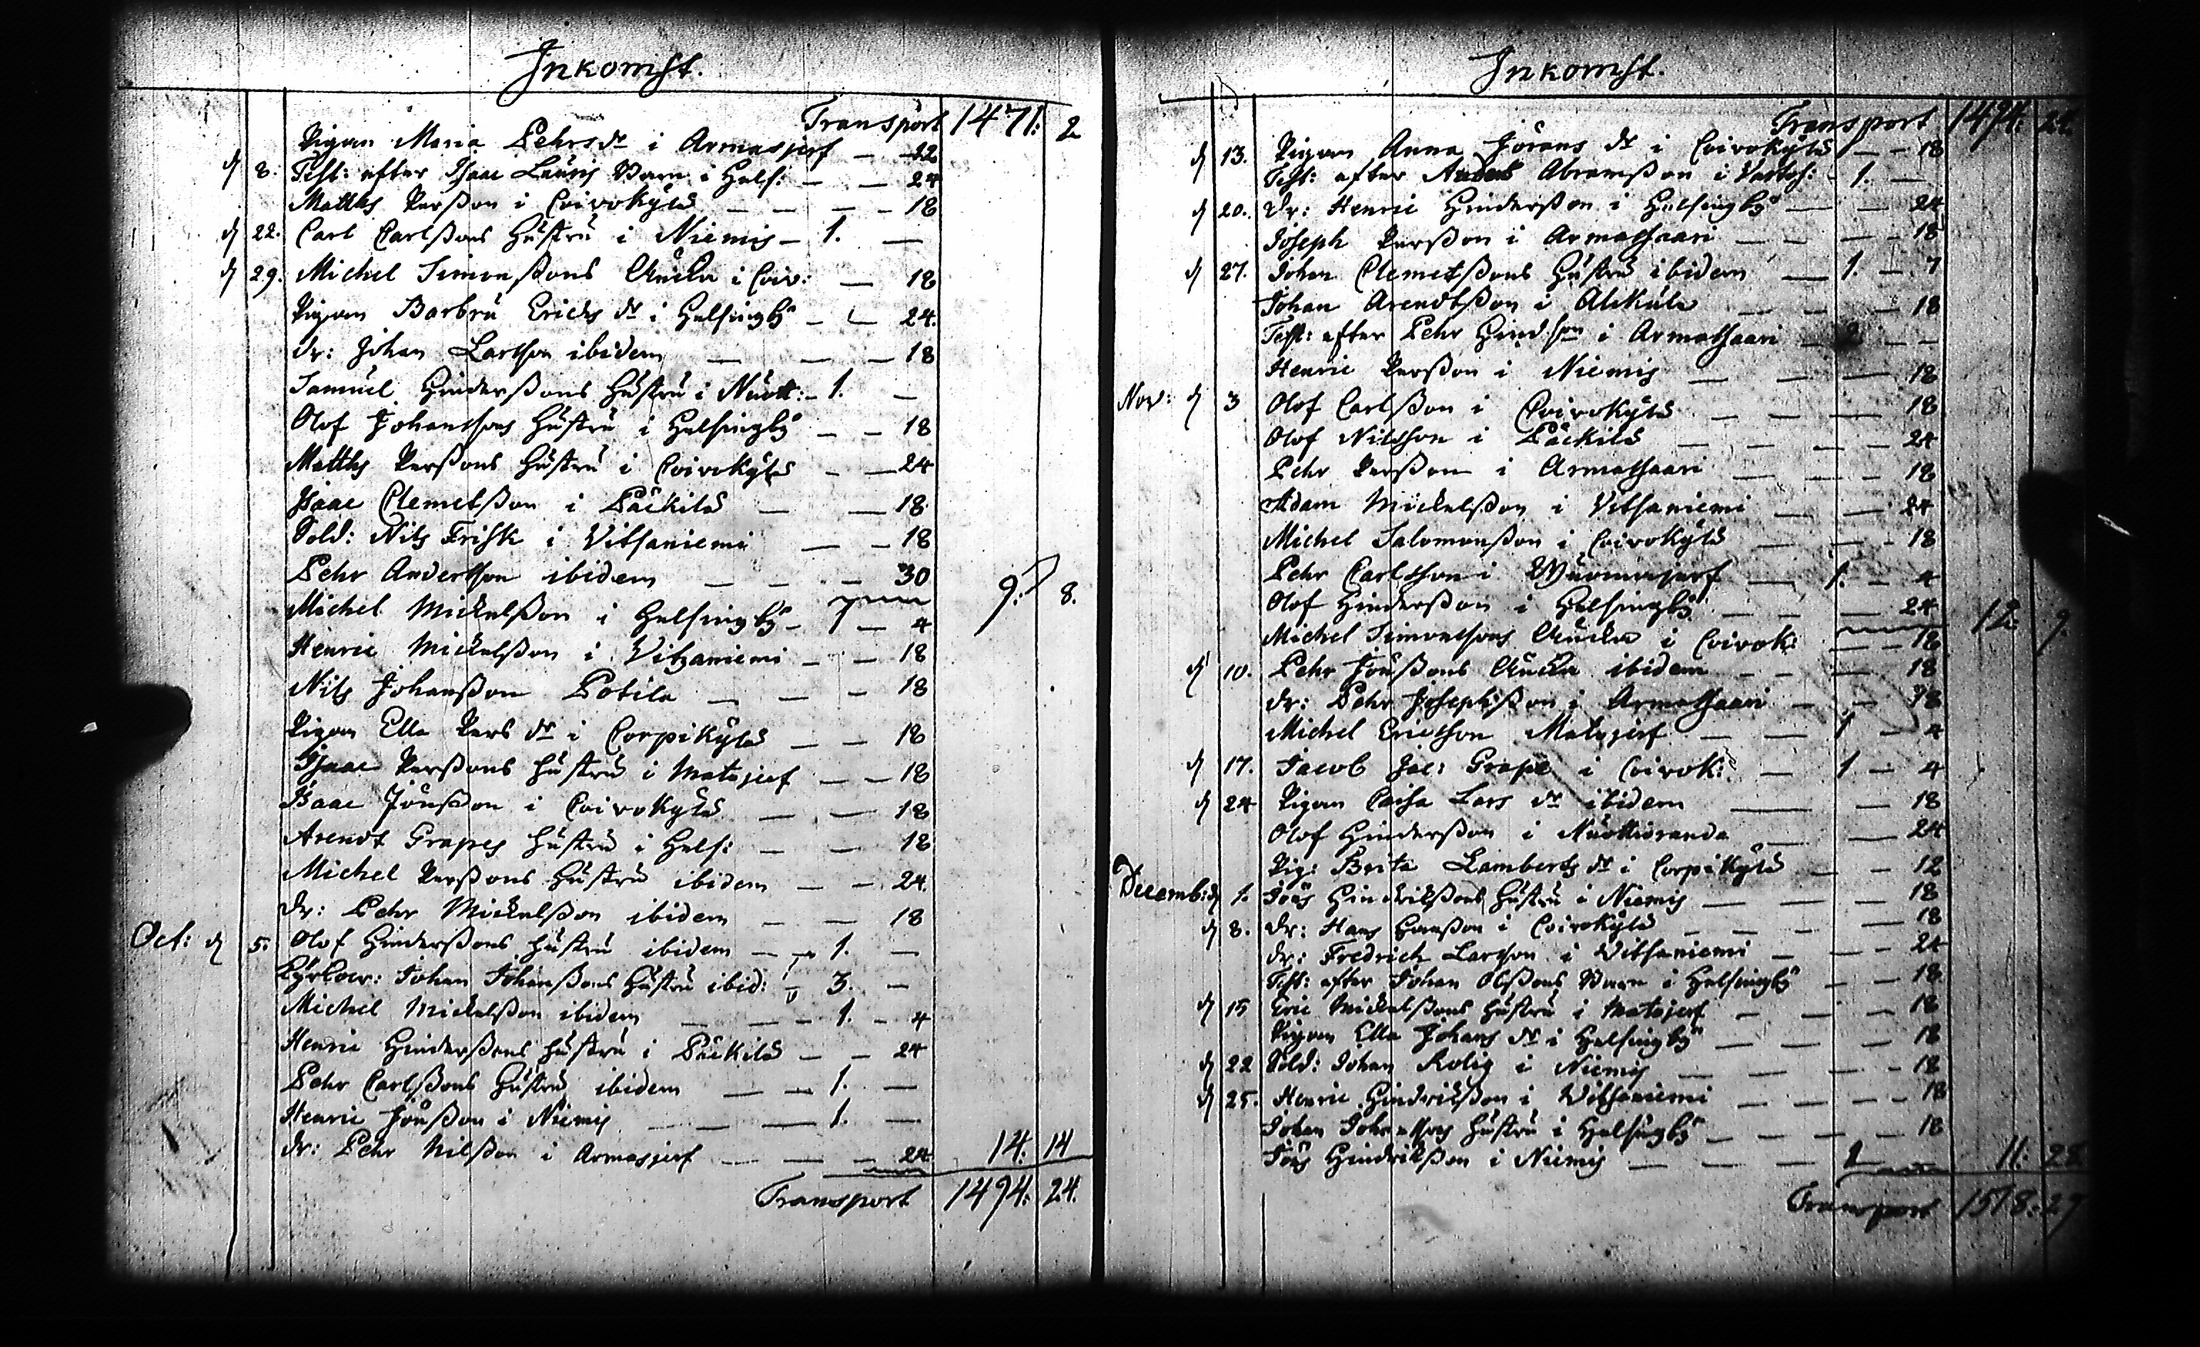 Inkomst.
Transport 1471: 2
Pigan Maria Pehrs dr i Armasjerf — 22
d 8. Test: efter Isaac Lauris Barn i Hels: — — 24
Matths Persson i Coivokylä — — — 18
d 22. Carl Carlssons hustru i Niemis — 1. —
d 29. Michel Simonssons Änka i Coiv: — 18
Pigan Barbru Erichs dr i Helsingby — — 24.
dr: Johan Larsson ibidem — — — 18
Samuel Hinderssons hustru i Nuott: — 1. —
Olof Johanssons hustru i Helsingby — — 18
Matths Perssons hustru i Coivokylä — — 24
Isaac Clemetsson i Päckilä — — 18
Sold: Nils Frisk i Vitsaniemi — — 18
Pehr Andersson ibidem — — — 30 9: 8.
Michel Mickelsson i Helsingby — 1 — 4
Henric Mickelsson i Vitzaniemi — — 18
Nils Johansson Potila — — — 18
Pigan Ella Pers dr i Corpikylä — — 18
Isaac Perssons hustru i Matojerf — — 18
Isaac Jönsson i Coivokylä — — 18
Arendt Grapes hustru i Hels: — — 18
Michel Perssons hustru ibidem — — 24.
dr: Pehr Mickelsson ibidem — — 18
Oct: d 5. Olof Hinderssons hustru ibidem — — 1. —
Johan Johanssons hustru ibid: — 3. —
Michel Mickelsson ibidem — — 1. — 4
Henric Hinderssons hustru i Päckilä — — 24
Pehr Carlssons hustru ibidem — — 1. —
Henric Jönsson i Niemis — — 1. —
dr: Pehr Nilsson i Armasjerf — — — 24 14: 14
Transport 1494: 24.
Inkomst.
Transport 1494: 24.
d 13. Pigan Anna Jörans dr i Coivokylä — — 18
Test: efter Anders Abramsson i : 1. —
d 20. dr: Henric Hindersson i Helsingby — — 24
Joseph Persson i Armassaari — — — 18
d 27. Johan Clemetssons hustru ibidem — 1. — 7
Johan Arendtsson i Alkula — — — 18
Test: efter Pehr Hindsson i Armassaari — 2 — —
Henric Persson i Niemis — — — 18
Nov: d 3 Olof Carlsson i Coivokylä — — — 18
Olof Nilsson i Päckilä — — — 24
Pehr Persson i Armassaari — — — 18
Adam Mickelsson i Vitsaniemi — — 24
Michel Salomonsson i Coivokylä — — 18
Pehr Carlsson i — 1. — 4
Olof Hindersson i Helsingby — — 24 12: 9.
Michel Simonssons Änka i Coivok: — — 18
d 10. Pehr Jönssons Änka ibidem — — — 18
dr: Pehr Josephsson i Armassaari — — 18
Michel Ericsson Matojerf — — 1 — 4
d 17. Jacob Jac: Grape i Coivok: — 1 — 4
d 24 Pigan Caisa Lars dr ibidem — — 18
Olof Hindersson i Nuottioranda — 24
Pig: Brita Lamberts dr i Corpikylä — — 12
Decemb: d 1. Jöns Hindrikssons hustru i Niemis — — — 18
d 8. dr: Hans Hansson i Coivokylä — — — 18
dr: Fredrich Larsson i Vitsaniemi — — 24
Test: efter Johan Olssons Barn i Helsingby — — 18
d 15 Eric Mickelssons hustru i Matojerf — — — 18
Pigan Ella Johans dr i Helsingby — — — 18
d 22 Sold: Johan Rolig i Niemis — — — 18
d 25. Henric Hindriksson i Vitsaniemi — — — 18
Johan Johanssons hustru i Helsingby — — — 18
Jöns Hindriksson i Niemis — — — 1 — 11: 28
Transport 1518: 27